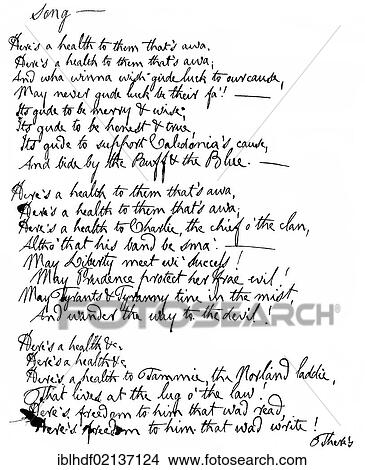 Song —
Here's a health to them that's awa,
Here's a health to them that's awa;
And wha winna wish gude luck to our cause,
May never gude luck be their fa'! —
Its gude to be merry & wise;
Its gude to be honest & true,
Its gude to support Caledonia's cause,
And bide by the Buff & the Blue. —
Here's a health to them that's awa,
Here's a health to them that's awa;
Here's a health to Charlie, the chief o' the clan,
Altho' that his band be sma'. —
May Liberty meet wi' success!
May Prudence protect her frae evil!
May Tyrants & Tyranny tine in the mist,
And wander the way to the devil!
Here's a health &c.
Here's a health &c
Here's a health to Tammie, the Norland laddie,
That lives at the lug o' the law!
Here's freedom to him that wad read,
Here's freedom to him that wad write!
There's
FOTOSEARCH®
iblhdf02137124 www.fotosearch.com